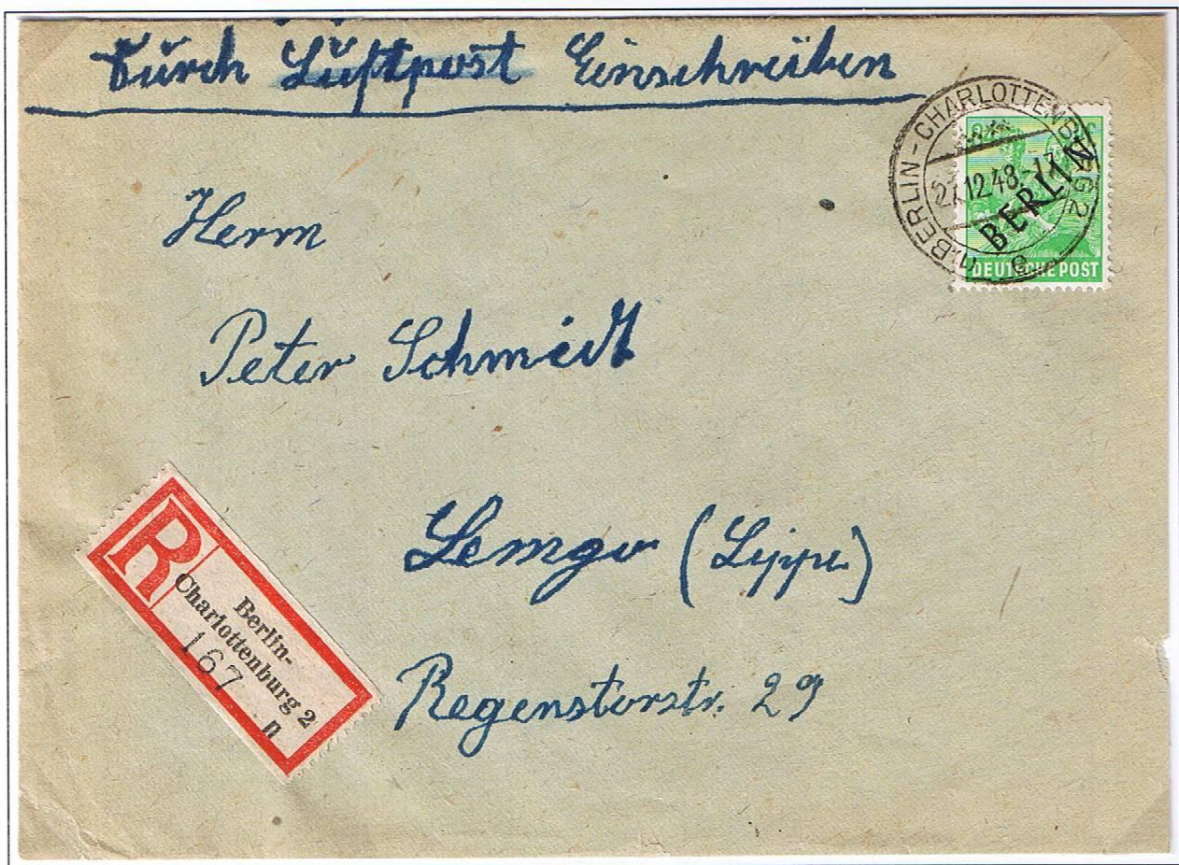 Durch Luftpost Einschreiben
BERLIN-CHARLOTTENBURG 2
12.48.-17
BERLIN
e
DEUTSCHE POST
Herrn
Peter Schmidt
Lemgo (Lippe)
Regenstorstr. 29
R
Berlin-
Charlottenburg 2
167 n